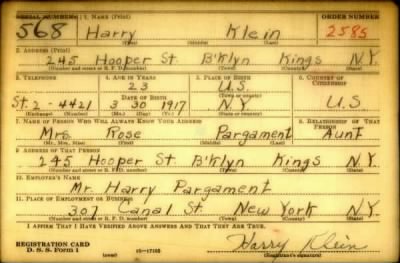 SERIAL NUMBER 1. NAME (Print) ORDER NUMBER
568 Harry Klein 2585
(First) (Middle) (Last)
2. ADDRESS (Print)
245 Hooper St B'klyn Kings N.Y.
(Number and street or R. F. D. number) (Town) (County) (State)
3. TELEPHONE 4. AGE IN YEARS 5. PLACE OF BIRTH 6. COUNTRY OF CITIZENSHIP
23 U.S.
DATE OF BIRTH (Town or county)
St. 2-4421 3 30 1917 N.Y. U.S
(Mo.) (Day) (Yr.) (State or country)
7. NAME OF PERSON WHO WILL ALWAYS KNOW YOUR ADDRESS 8. RELATIONSHIP OF THAT PERSON
Mrs. Rose Pargament Aunt
(Mr., Mrs., Miss) (First) (Middle) (Last)
9. ADDRESS OF THAT PERSON
245 Hooper St B'klyn Kings N.Y.
(Number and street or R. F. D. number) (Town) (County) (State)
10. EMPLOYER'S NAME
Mr. Harry Pargament
11. PLACE OF EMPLOYMENT OR BUSINESS
307 Canal St New York N.Y.
(Number and street or R. F. D. number) (Town) (County) (State)
I AFFIRM THAT I HAVE VERIFIED ABOVE ANSWERS AND THAT THEY ARE TRUE.
REGISTRATION CARD
D. S. S. Form 1 16-17105 Harry Klein